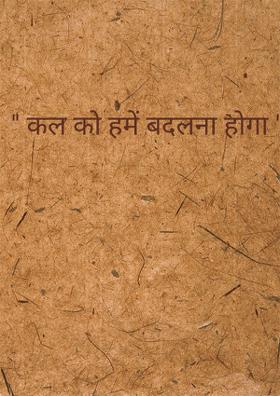 " कल को हमें बदलना होगा "